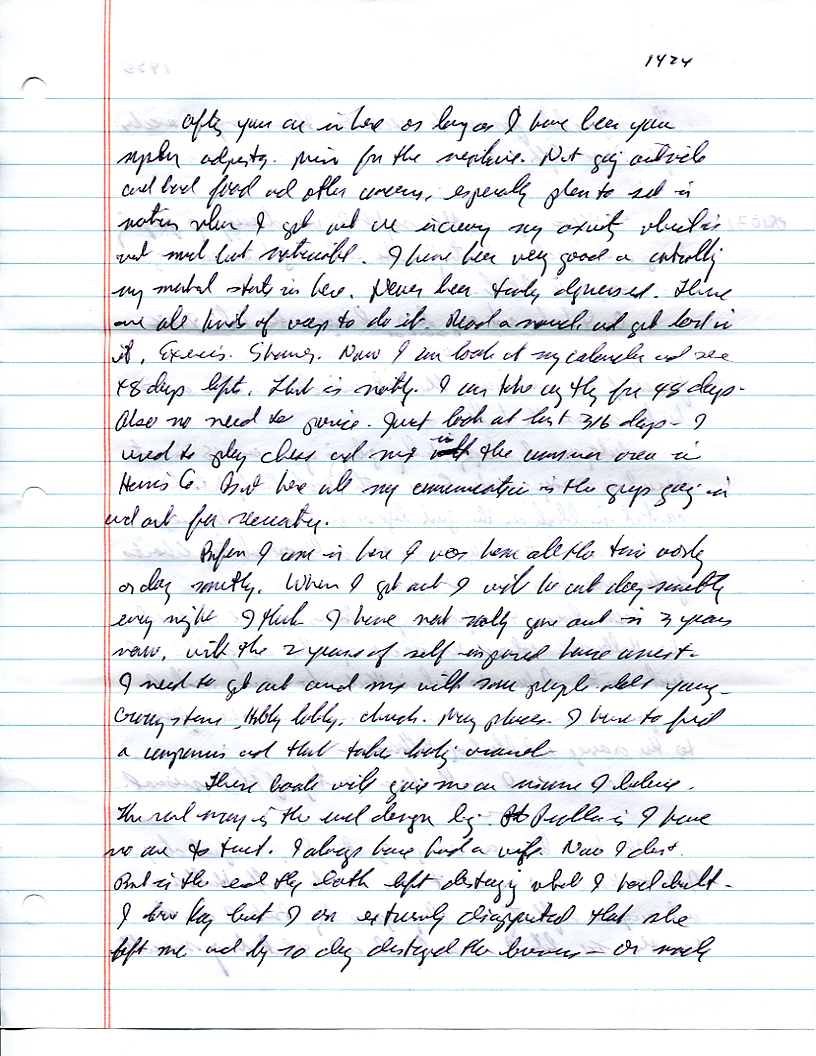 1424
After you are in here as long as I have been your
for the
and bad food and other concerns, especially plans to set in
motion when I get out are increasing my anxiety which is
not much but noticeable. I have been very good at controlling
my mental state in here. Never been truly depressed. There
are all kinds of ways to do it. Read a novel and get lost in
it, Exercise. Now I can look at my calendar and see
48 days left. That is nothing. I can take anything for 48 days.
Also no need to panic. Just look at last 316 days - I
used to play chess and in the common area in
Harris Co. But here all my communication is the guys going in
and out for security.
Before I came in here I was home all the time
or doing something. When I get out I will be out doing something
every night. I think I have not really gone out in 3 years
now, with the 2 years of self imposed house arrest.
I need to get out and mix with some people
Hobby lobby, church. Many places. I have to find
a companion and that takes looking around
These books will give me an income I believe.
The real money is the well design biz. Problem is I have
no one to trust. I always have had a wife. Now I don't.
But in the end they both left destroying what I had built.
I love Kay but I am extremely disappointed that she
left me and by so doing destroyed the business - or nearly